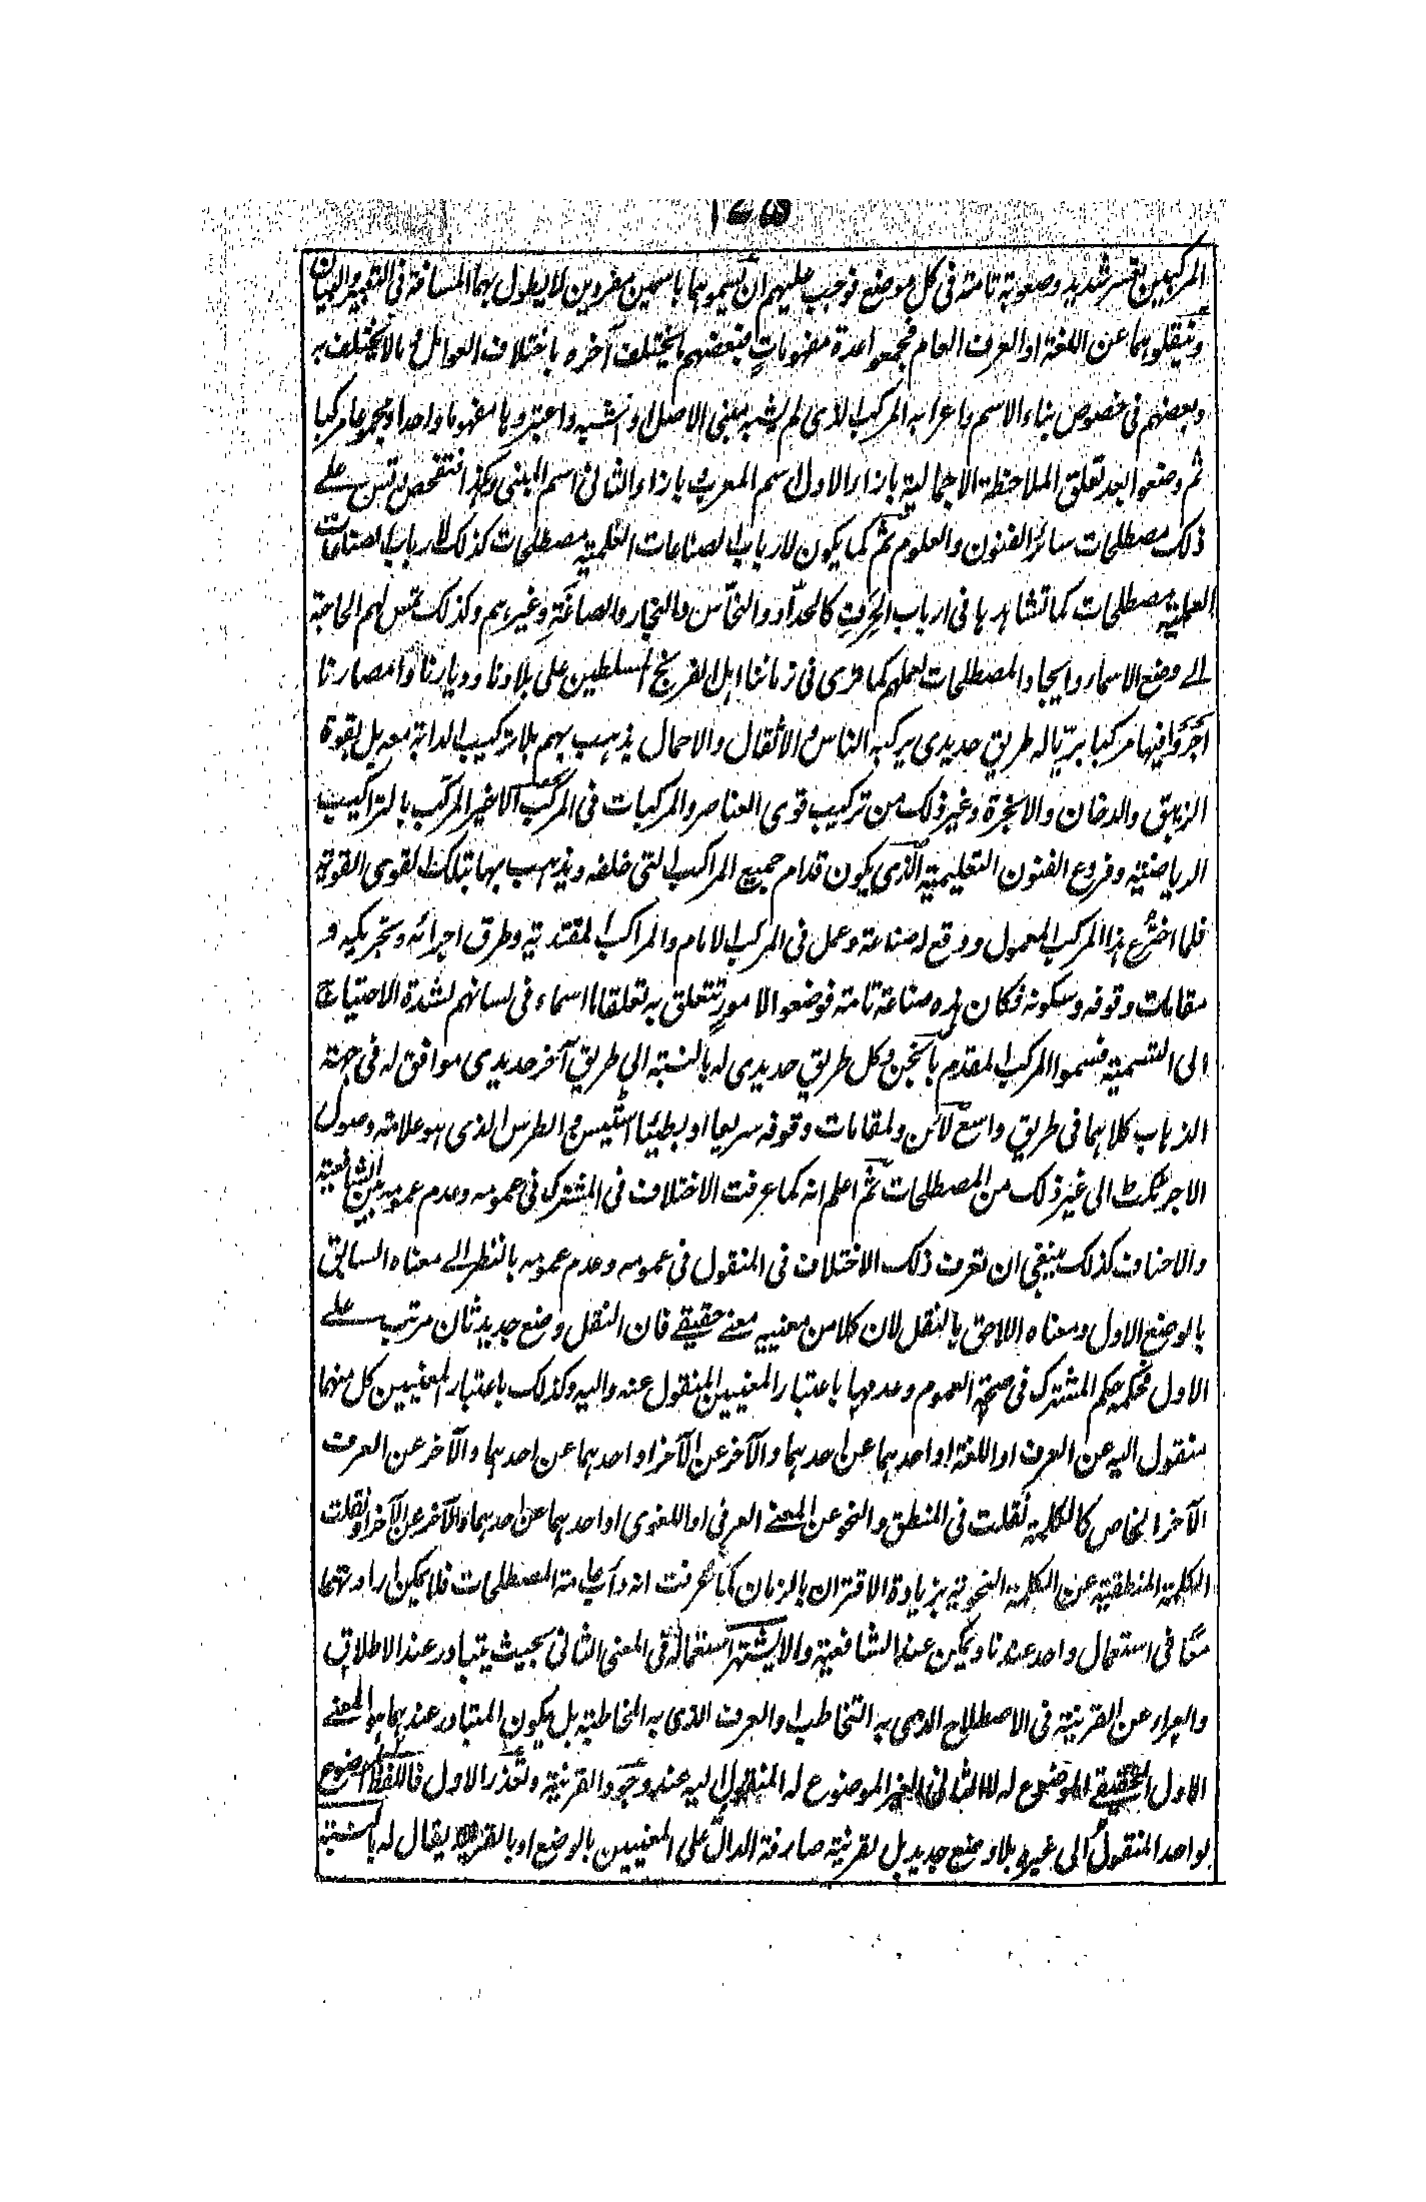 المركبين بقسر شديد وصعوبة تامة فى كل موضع فوجب عليهم ان يسموهما باسمين مفردين لا يطول بهما المسافة فى التعبير والبيان
وينقلوهما عن اللغة او العرف العام فجمعوا عدة مفهومات فبعضهم ما يختلف آخره باختلاف العوامل وما لا يختلف به
وبعضهم فى خصوص بناء الاسم واعرابه المركب الذى لم يشبه مبنى الاصل او اشبه واعتبروها مفهوما واحدا ومجموعا مركبا
ثم وضعوا بعد تعلق الملاحظة الاجمالية بازاء الاول اسم المعرب وبازاء الثانى اسم المبنى وهكذا فتفحص وقس على
ذلك مصطلحات سائر الفنون والعلوم ثم كما يكون لارباب الصناعات العلمية مصطلحات كذلك لارباب الصناعات
العملية مصطلحات كما تشاهدها فى ارباب الحرف كالحداد والنحاس والنجار والصاغة وغيرهم وكذلك تمس لهم الحاجة
الے وضع الاسماء وايجاد المصطلحات لعملهم كما ترى فى زماننا اهل الفرنج المسلطين على بلادنا وديارنا وامصارنا
اجروا فيها مركبا بريا له طريق حديدى يركبه الناس والاثقال والاحمال يذهب بهم بلا تركيب الدابة معه بل بقوة
الزيبق والدخان والابخرة وغير ذلك من تركيب قوى العناصر والمركبات فى المركب الاخير المركب بالتراكيب
الرياضية وفروع الفنون التعليمية الذى يكون قدام جميع المراكب التى خلفه ويذهب بها بتلك القوى القوية
فلما اخترع هذا المركب المعمول ووقع له صناعة وعمل فى المركب الامام والمراكب المقتدية وطرق اجرائه وتحريكه و
مقامات وقوفه وسكونه فكان هذه صناعة تامة فوضعوا لامور تتعلق به تعلقا ما اسماء فى لسانهم لشدة الاحتياج
الى التسمية فسموا المركب المقدم بانجن وكل طريق حديدى له بالنسبة الى طريق آخر حديدى موافق له فى جهة
الذهاب كلاهما فى طريق واسع لائن ولمقامات وقوفه سريعا او بطيئا اسٹيس والطرس الذى هو علامة وصول
الاجر ٹكٹ الى غير ذلك من المصطلحات ثم اعلم انه كما عرفت الاختلاف فى المشترك فى عمومه وعدم عمومه بين الشافعية
والاحناف كذلك ينبغى ان تعرف ذلك الاختلاف فى المنقول فى عمومه وعدم عمومه بالنظر الے معناه السابق
بالوضع الاول ومعناه اللاحق بالنقل لان كلا من معنييه معنے حقيقے فان النقل وضع جديد ثان مرتب علے
الاول فحكمه حكم المشترك فى صحة العموم وعدمها باعتبار المعنيين المنقول عنه واليه وكذلك باعتبار المعنيين كل منهما
منقول اليه عن العرف او اللغة او احدهما عن احدهما والآخر عن الآخر او احدهما عن احدهما والآخر عن العرف
الآخر الخاص كالكلمة نقلت فى المنطق والنحو عن المعنے العرفى او اللغوى او احدهما عن احدهما والآخر عن الآخر او نقلت
الكلمة المنطقية عن الكلمة النحوية بزيادة الاقتران بالزمان كما عرفت انه دأب عامة المصطلحات فلا يمكن ارادتهما
معا فى استعمال واحد عندنا ويمكن عند الشافعية والا يشتهر استعماله فى المعنى الثانى بحيث يتبادر عند الاطلاق
والعراء عن القرينة فى الاصطلاح الذى به التخاطب والعرف الذى به المخاطبة بل يكون المتبادر عندهما هو المعنے
الاول الحقيقے الموضوع له لا الثانى الغير الموضوع له المنقول اليه عند وجود القرينة وتعذر الاول فاللفظ الموضوع
لواحد المنقول الى غيره بلا وضع جديد بل لقرينة صارفة الدال على المعنيين بالوضع او بالقرينة يقال له بالنسبة